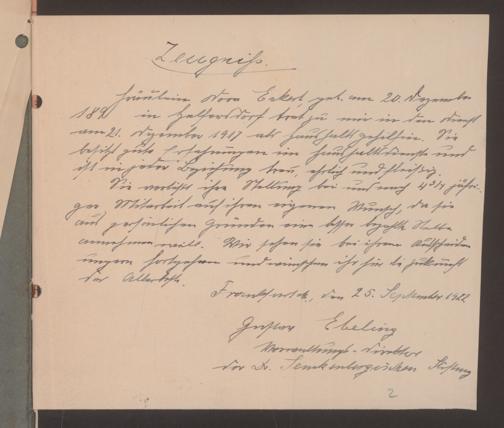 Zeugniß.
Fräulein Dora Eckert, geb. am 20. Dezember
189 in trat zu mir in den Dienst
am 21. Dezember 1917 als Haushaltgehilfin. Sie
besitzt gute Erfahrungen im Haushaltsdienste und
ist in jeder Beziehung treu, ehrlich und fleißig.
Sie verläßt ihre Stellung bei uns nach 4 3/4 jähri-
ger Mitarbeit auf ihren eigenen Wunsch, da sie
aus persönlichen Gründen eine besser bezahlte Stelle
annehmen will. Wir sehen sie bei ihrem Ausscheiden
ungern fortgehen und wünschen ihr für die Zukunft
das Allerbeste.
Frankfurt a. M., den 25. September 1922
Gustav Ebeling
Verwaltungs-Direktor
der Dr. Senckenbergischen Stiftung
2